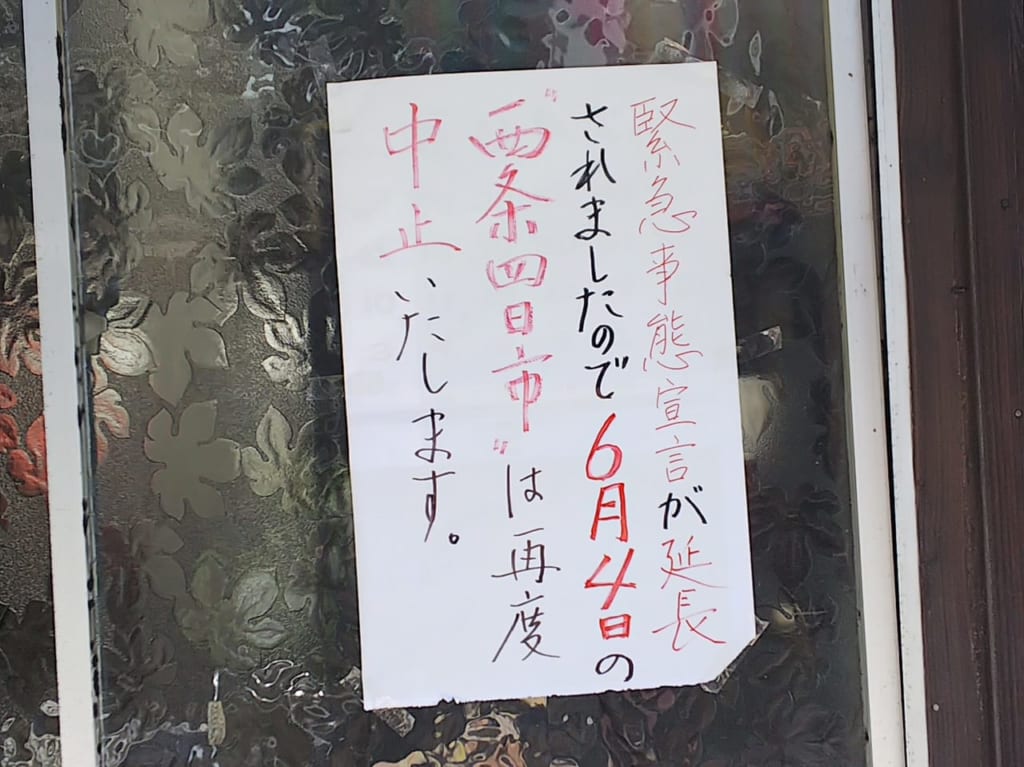 緊急事態宣言が延長
されましたので6月4日の
"西条四日市"は再度
中止いたします。